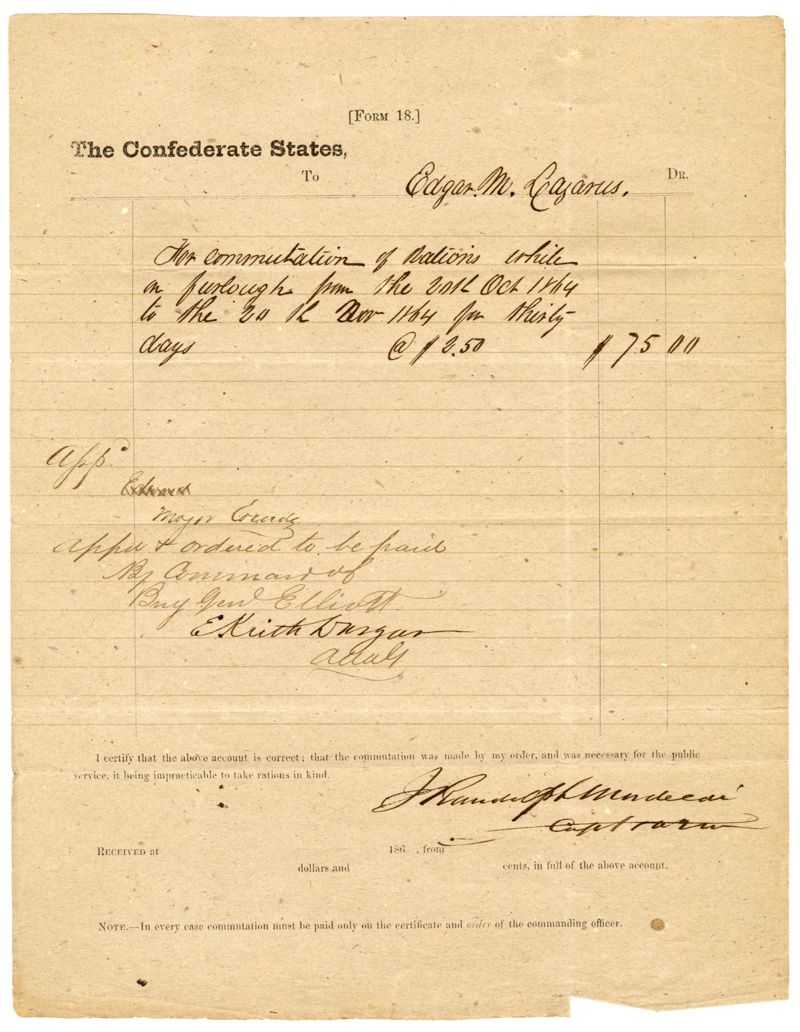 [FORM 18.]
The Confederate States,
To Edgar. M. Lazarus. DR.
For commutation of Rations while
on furlough from the 20th Oct 1864
to the 20th Nov 1864 for thirty
days @ $2.50 $75 00
Appd
Edward
Major Comdg
Appd & ordered to be paid
By Command of
Brig Genl Elliott
E Keith Dargan
AAAG
I certify that the above account is correct; that the commutation was made by my order, and was necessary for the public
service, it being impracticable to take rations in kind.
J Randolph Mordecai
Capt
RECEIVED at 186 , from
dollars and cents, in full of the above account.
NOTE.—In every case commutation must be paid only on the certificate and order of the commanding officer.